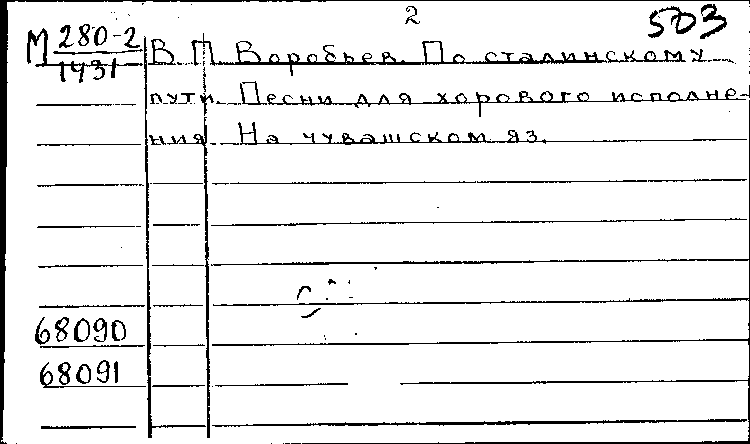 2
503
М 280-2
1431
В. П. Воробьев. По сталинскому
пути. Песни для хорового исполне-
ния. На чувашском яз.
68090
68091